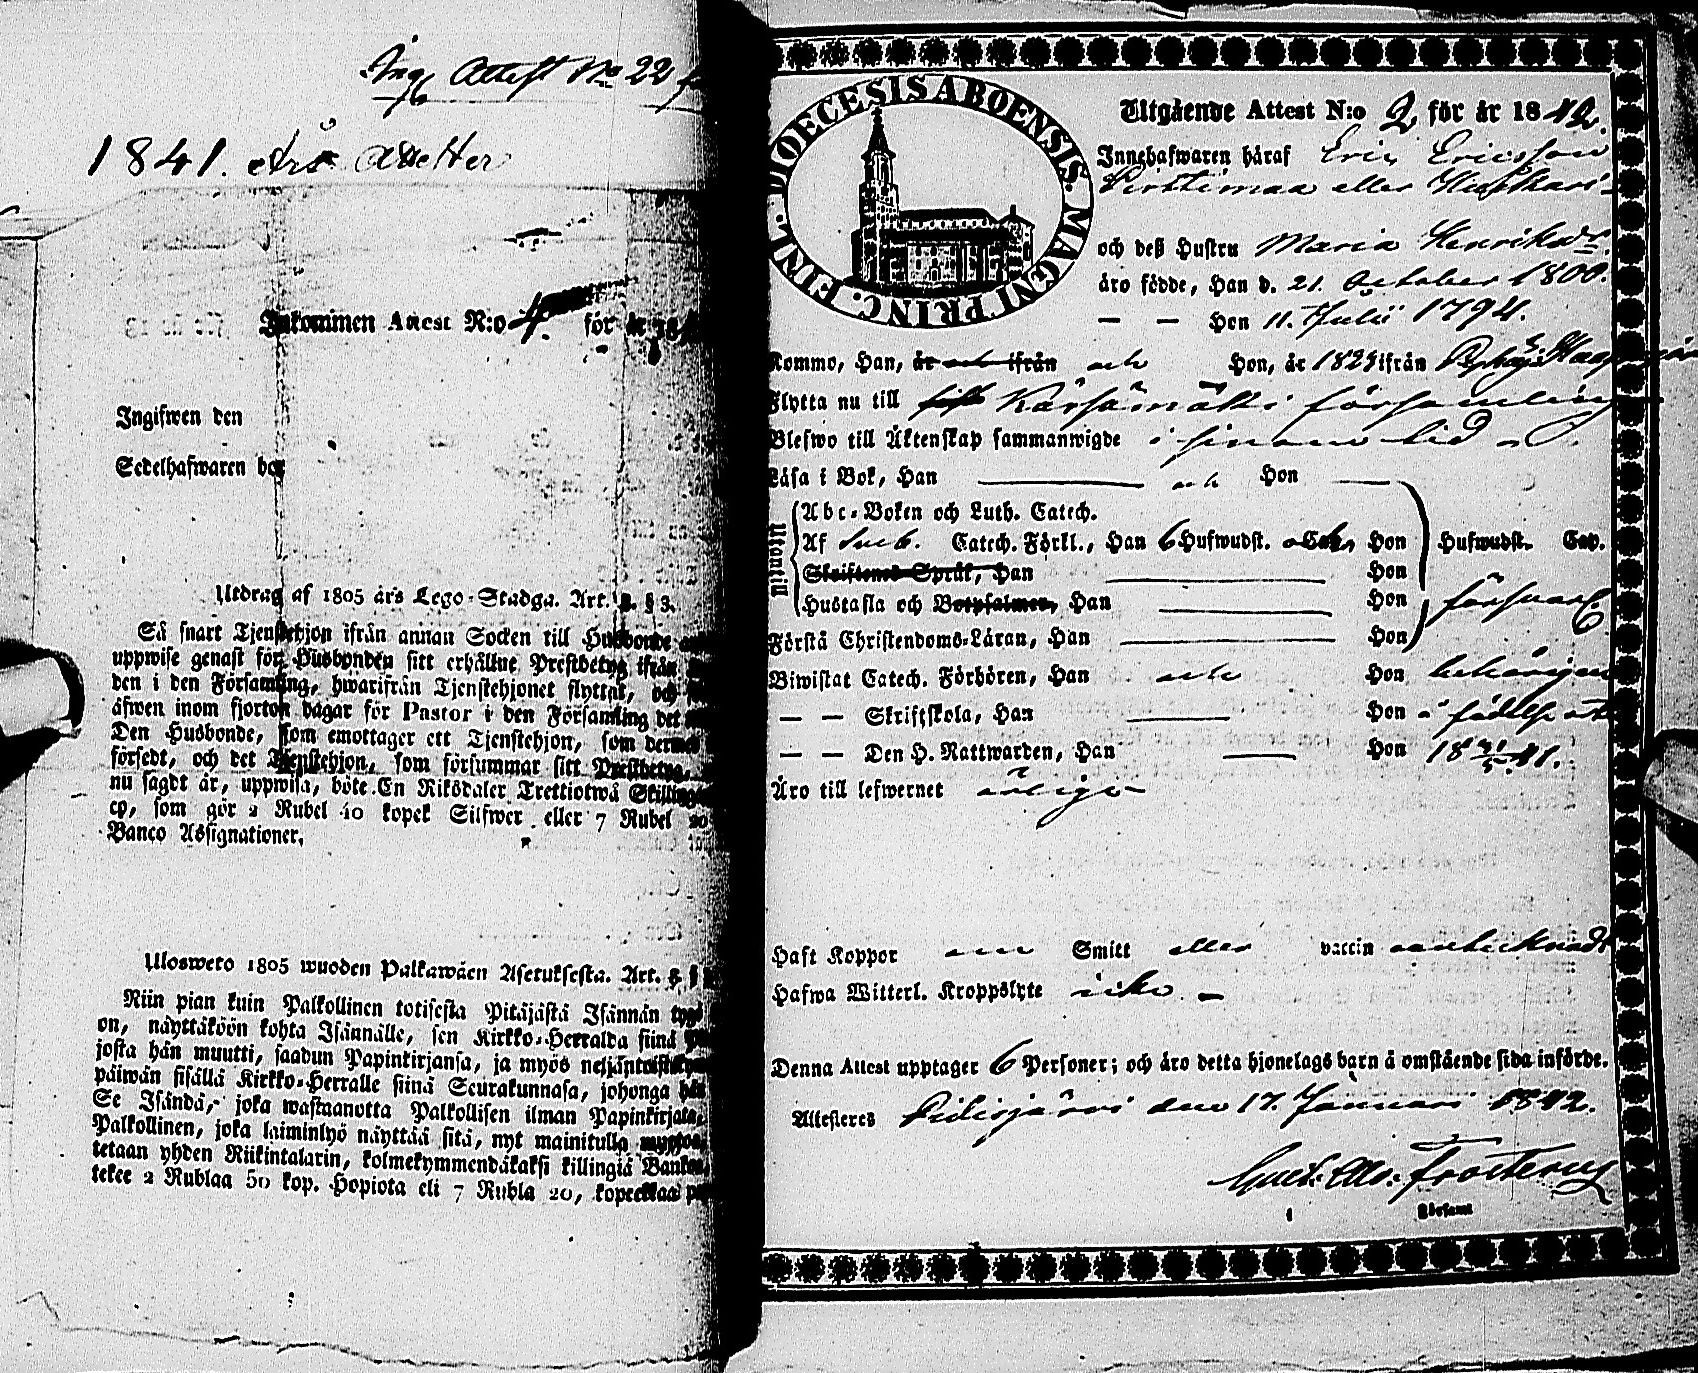 Ing. Attest No 22
1841. Års Attester
Inkommen Attest N:o 4. för år 18
Ingifwen den
Sedelhafwaren bor
Utdrag af 1805 års Lego-Stadga. Art. § 3.
Så snart Tjenstehjon ifrån annan Socken till Husbonde
uppwise genast för Husbonden sitt erhållne Prestbetyg ifrån
den i den Församling, hwarifrån Tjenstehjonet flyttat, och
äfwen inom fjorton dagar för Pastor i den Församling det
Den Husbonde, som emottager ett Tjenstehjon, som dermed
försedt, och det Tjenstehjon, som försummar sitt Prestbetyg,
nu sagdt är, uppwisa, böte En Riksdaler Trettiotwå Skillingar
co, som gör 2 Rubel 40 kopek Silfwer eller 7 Rubel 20
Banco Assignationer.
Ulosweto 1805 wuoden Palkawäen Asetuksesta. Art. §
Niin pian kuin Palkollinen totisesta Pitäjästä Isännän tygö
on, näyttäköön kohta Isännälle, sen Kirkko-Herralda siinä
josta hän muutti, saadun Papinkirjansa, ja myös neljäntoistakym
päiwän sisällä Kirkko-Herralle siinä Seurakunnasa, johonga hän
Se Isändä, joka wastaanotta Palkollisen ilman Papinkirjata,
Palkollinen, joka laiminlyö näyttää sitä, nyt mainitulla
tetaan yhden Riikintalarin, kolmekymmendäkaksi killingiä Bankos,
tekee 2 Rublaa 50 kop. Hopiota eli 7 Rubla 20, kopeekkaa
FINL. DIOECESIS ABOENSIS. MAGNI PRINC.
Utgående Attest N:o 2 för år 1842.
Innehafwaren häraf Eric Ericsson
Pirttimaa eller
och deß Hustru Maria Henriksdr.
äro födde, Han d. 21. October 1800.
— — Hon 11. Julii 1794.
Kommo, Han, är och ifrån och Hon, år 1829 ifrån
Flytta nu till Kärsämäki församling
Blefwo till Äktenskap sammanwigde i sinom tid
Läsa i Bok, Han och Hon
Utantill
Abc-Boken och Luth. Catech.
Af Sveb. Catech. Förkl., Han 6 Hufwudst. Hon Hufwudst. Cap.
Skriftenes Språk, Han Hon
Hustafla och Botpsalmer, Han Hon försvarl.
Förstå Christendoms-Läran, Han Hon
Biwistat Catech. Förhören, Han och Hon behörigen
— — Skriftskola, Han Hon å födelse ort
— — Den H. Nattwarden, Han Hon 18 41.
Äro till lefwernet ärliga
Haft Koppor Smitt eller vaccin oantecknadt
Hafwa Witterl. Kroppslyte icke
Denna Attest upptager 6 Personer; och äro detta hjonelags barn å omstående sida införde.
Attesteres Pidisjärvi den 17. Januari 1842.
Gust. Ad. Frosterus
i Församl